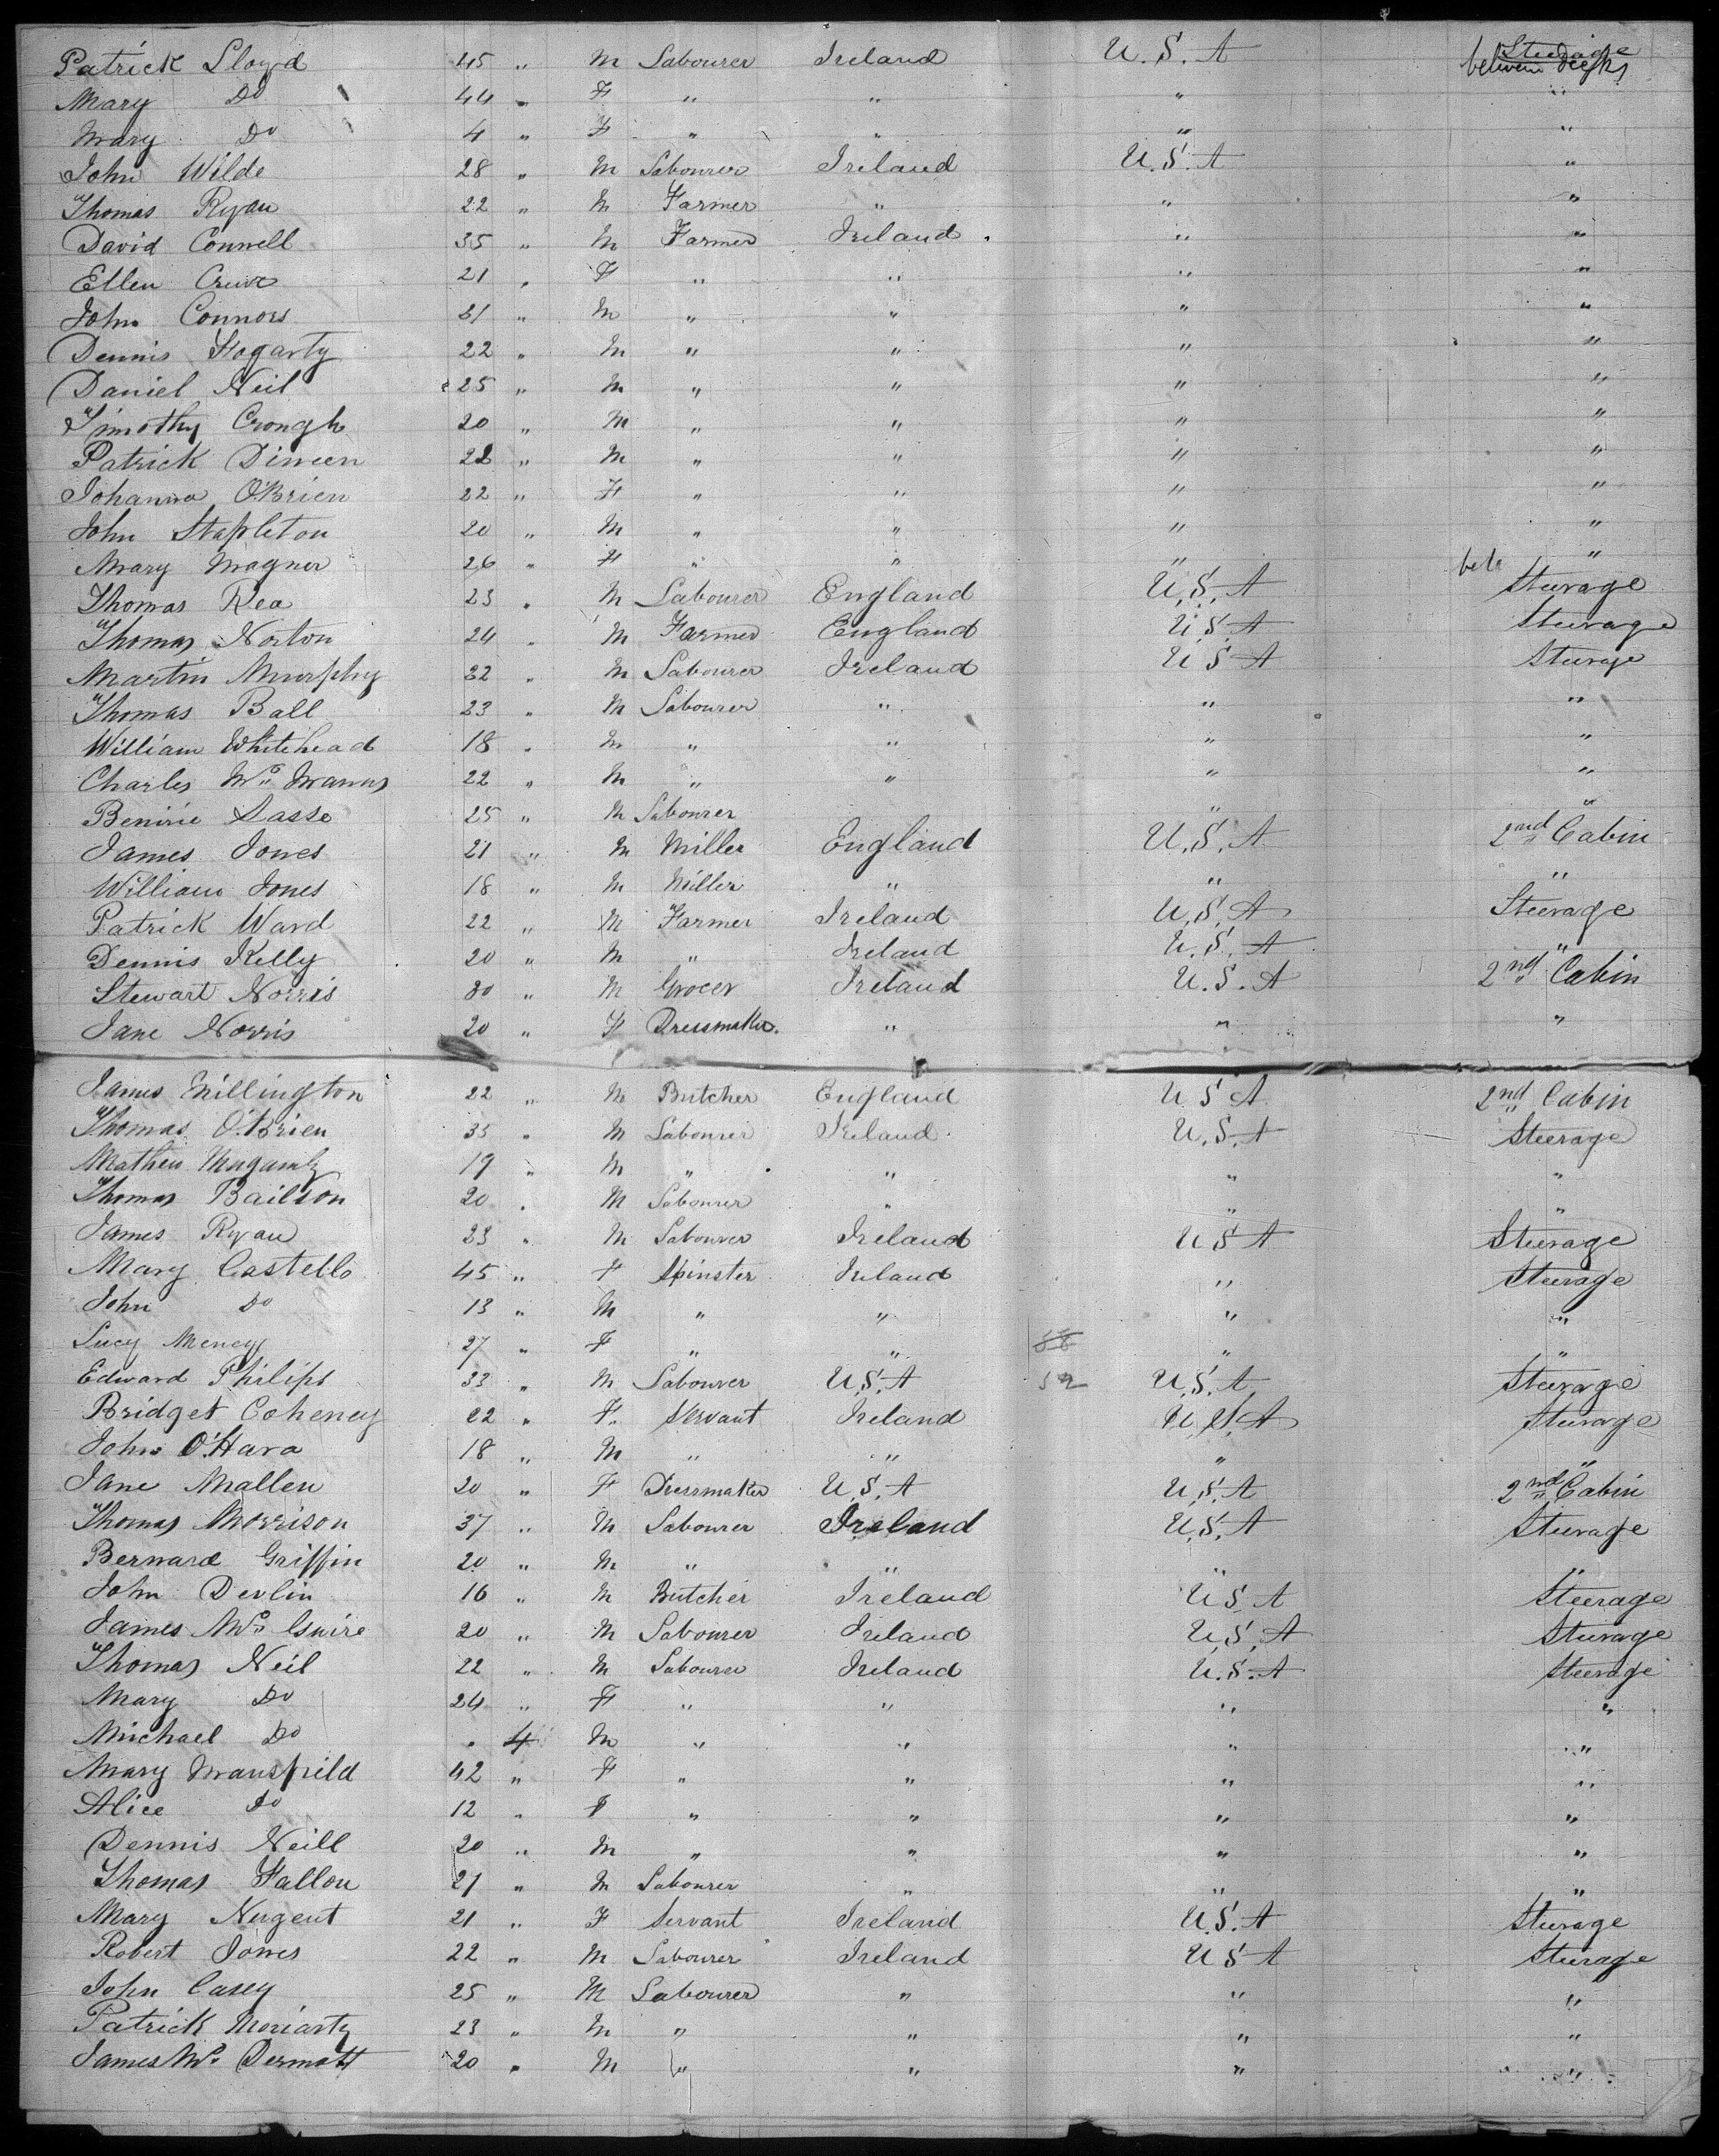 Patrick Lloyd 45 " M Labourer Ireland U.S.A Steerage between decks
Mary Do 44 " F " " " "
Mary Do 4 " F " " " "
John Wilde 28 " M Labourer Ireland U.S.A "
Thomas Ryan 22 " M Farmer " " "
David Connell 35 " M Farmer Ireland " "
Ellen 21 " F " " " "
John Connors 21 " M " " " "
Dennis Fogarty 22 " M " " " "
Daniel Neil 25 " M " " " "
Timothy Crongh 20 " M " " " "
Patrick Dineen 22 " M " " " "
Johanna O'Brien 22 " F " " " "
John Stapleton 20 " M " " " "
Mary Magner 26 " F " " " "
Thomas Rea 23 " M Labourer England U.S.A Steerage
Thomas Norton 24 " M Farmer England U.S.A Steerage
Martin Murphy 22 " M Labourer Ireland U.S.A Steerage
Thomas Ball 23 " M Labourer " " "
William Whitehead 18 " M " " " "
Charles Mc Manus 22 " M " " " "
Sasse 25 " M Labourer " "
James Jones 21 " M Miller England U.S.A 2nd Cabin
William Jones 18 " M Miller " " "
Patrick Ward 22 " M Farmer Ireland U.S.A Steerage
Dennis Kelly 20 " M " Ireland U.S.A "
Stewart Norris 30 " M Grocer Ireland U.S.A 2nd Cabin
Jane Norris 20 " F Dressmaker. " " "
James Millington 22 " M Butcher England U S A 2nd Cabin
Thomas O'Brien 35 " M Labourer Ireland U.S.A Steerage
Mathew 19 " M " " " "
Thomas Bailson 20 " M Labourer " " "
James Ryan 23 " M Labourer Ireland U S A Steerage
Mary Costello 45 " F Spinster Ireland " Steerage
John Do 13 " M " " " "
Lucy Meney 27 " F " " " "
Edward Philips 33 " M Labourer U.S.A U.S.A Steerage
Bridget Coheney 22 " F. Servant Ireland U.S.A Steerage
John O'Hara 18 " M " " " "
Jane Mallen 20 " F Dressmaker U.S.A U.S.A 2nd Cabin
Thomas Morrison 37 " M Labourer Ireland U.S.A Steerage
Bernard Griffin 20 " M " " " "
John Devlin 16 " M Butcher Ireland U S A Steerage
James Mc Guire 20 " M Labourer Ireland U.S.A Steerage
Thomas Neil 22 " M Labourer Ireland U.S.A Steerage
Mary Do 24 " F " " " "
Michael Do " 4 M " " " "
Mary Mansfield 42 " F " " " "
Alice Do 12 " F " " " "
Dennis Neill 20 " M " " " "
Thomas Fallon 21 " M Labourer " " "
Mary Nugent 21 " F Servant Ireland U.S.A Steerage
Robert Jones 22 " M Labourer Ireland U S A Steerage
John Casey 25 " M Labourer " " "
Patrick Moriarty 23 " M " " " "
James Mc Dermott 20 " M " " " "